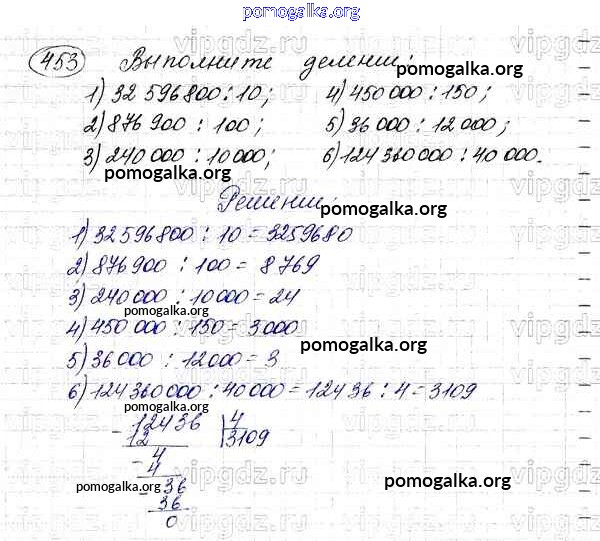 pomogalka.org
453 Выполните деление:
pomogalka.org
1) 32 596 800 : 10; 4) 450 000 : 150;
2) 876 900 : 100; 5) 36 000 : 12 000;
3) 240 000 : 10 000; 6) 124 360 000 : 40 000.
pomogalka.org
Решение:
pomogalka.org
1) 32596800 : 10 = 3259680
2) 876900 : 100 = 8769
3) 240 000 : 10000 = 24
pomogalka.org
4) 450 000 : 150 = 3000
pomogalka.org
5) 36000 : 12000 = 3
6) 124360000 : 40000 = 12436 : 4 = 3109
pomogalka.org
- 12436 4
12 3109
4
- 4
pomogalka.org
- 36
36
0
pomogalka.org
vipgdz.ru